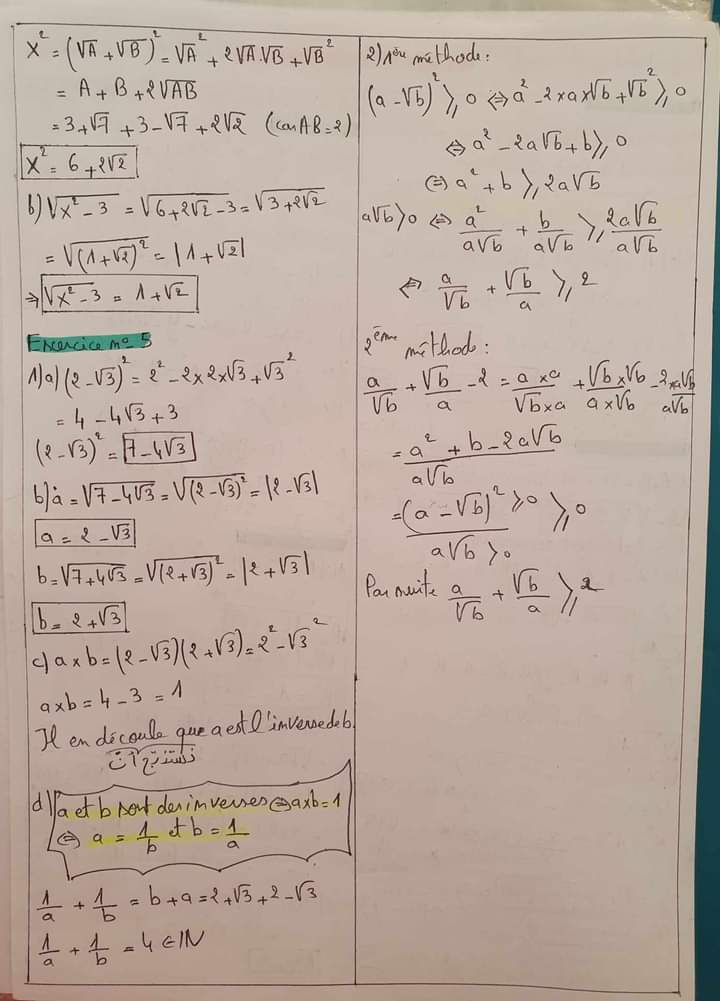 X² = (√A + √B)² = √A² + 2√A.√B + √B²
= A + B + 2√AB
= 3+√7 + 3-√7 + 2√2 (car AB=2)
X² = 6 + 2√2
b) √(X² - 3) = √(6+2√2 - 3) = √(3+2√2)
= √((1+√2)²) = |1+√2|
⇒ √(X² - 3) = 1+√2
Exercice n° 5
1) a) (2-√3)² = 2² - 2×2×√3 + √3²
= 4 - 4√3 + 3
(2-√3)² = 7-4√3
b) a = √(7-4√3) = √((2-√3)²) = |2-√3|
a = 2-√3
b = √(7+4√3) = √((2+√3)²) = |2+√3|
b = 2+√3
c) a×b = (2-√3)(2+√3) = 2² - √3²
a×b = 4-3 = 1
Il en découle que a est l'inverse de b.
نستنتج أن
d) a et b sont des inverses ⇔ a×b=1
⇔ a = 1/b et b = 1/a
1/a + 1/b = b+a = 2+√3+2-√3
1/a + 1/b = 4 ∈ IN
2) 1ère méthode:
(a-√b)² ⩾ 0 ⇔ a² - 2×a×√b + √b² ⩾ 0
⇔ a² - 2a√b + b ⩾ 0
⇔ a² + b ⩾ 2a√b
a√b > 0 ⇔ a²/a√b + b/a√b ⩾ 2a√b/a√b
⇔ a/√b + √b/a ⩾ 2
2ème méthode:
a/√b + √b/a - 2 = a×a/√b×a + √b×√b/a×√b - 2×a√b/a√b
= a² + b - 2a√b/a√b
= (a-√b)² ⩾0/a√b >0 ⩾ 0
Par suite a/√b + √b/a ⩾ 2